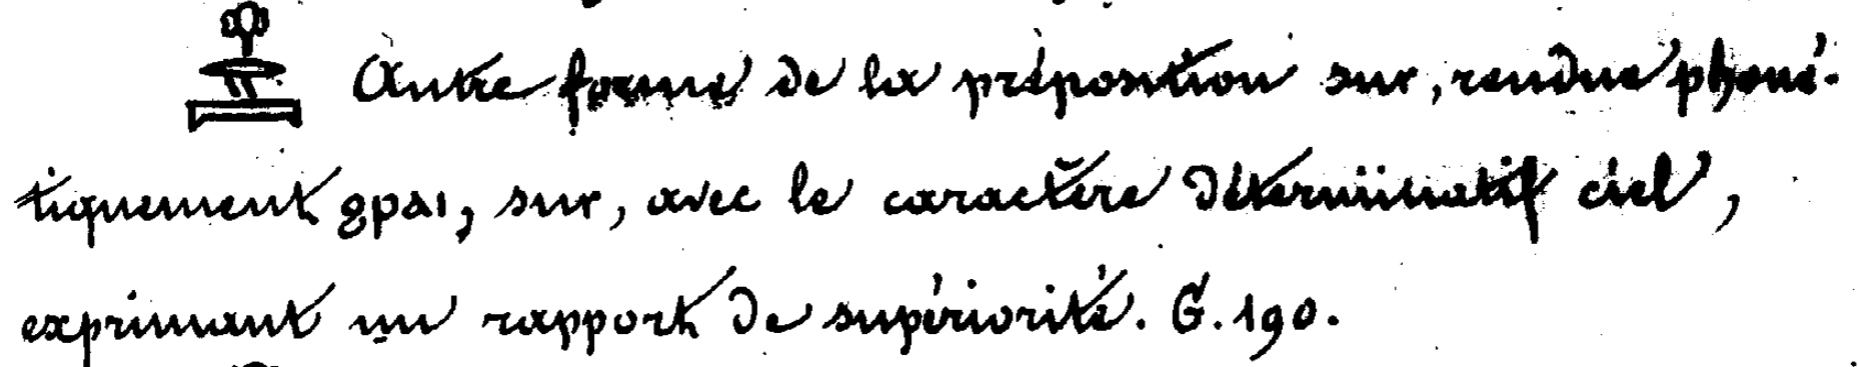 𓁷𓂋𓏭𓇯 Autre forme de la préposition sur, rendue phoné-
tiquement ϩⲣⲁⲓ, sur, avec le caractère déterminatif ciel,
exprimant un rapport de supériorité. G. 190.